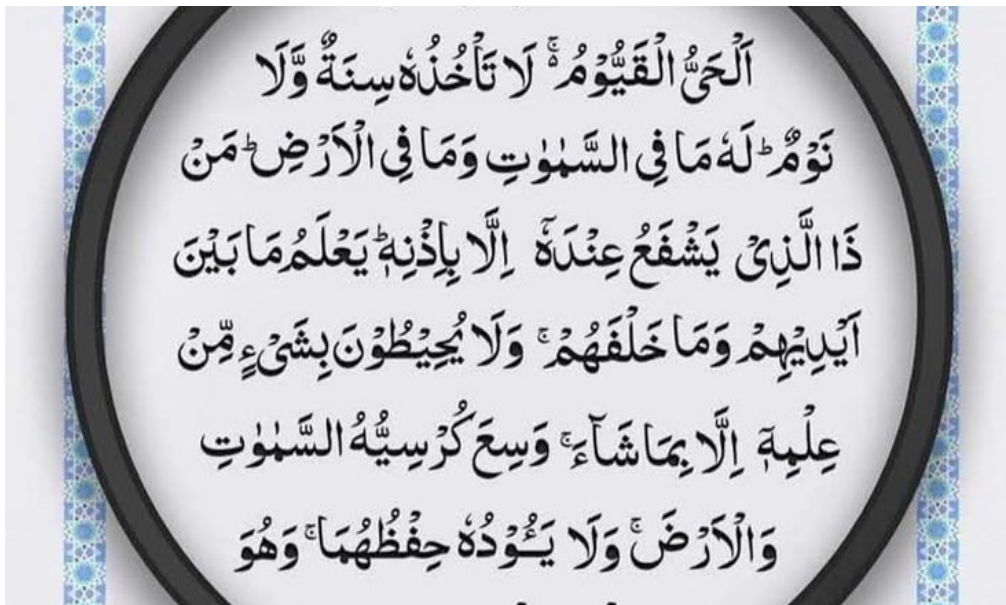 اَلۡحَیُّ الۡقَیُّوۡمُ ۬ۚ لَا تَاۡخُذُہٗ سِنَۃٌ وَّلَا
نَوۡمٌ ؕ لَہٗ مَا فِی السَّمٰوٰتِ وَمَا فِی الۡاَرۡضِ ؕ مَنۡ
ذَا الَّذِیۡ یَشۡفَعُ عِنۡدَہٗۤ اِلَّا بِاِذۡنِہٖ ؕ یَعۡلَمُ مَا بَیۡنَ
اَیۡدِیۡہِمۡ وَمَا خَلۡفَہُمۡ ۚ وَلَا یُحِیۡطُوۡنَ بِشَیۡءٍ مِّنۡ
عِلۡمِہٖۤ اِلَّا بِمَا شَآءَ ۚ وَسِعَ کُرۡسِیُّہُ السَّمٰوٰتِ
وَالۡاَرۡضَ ۚ وَلَا یَـُٔوۡدُہٗ حِفۡظُہُمَا ۚ وَہُوَ